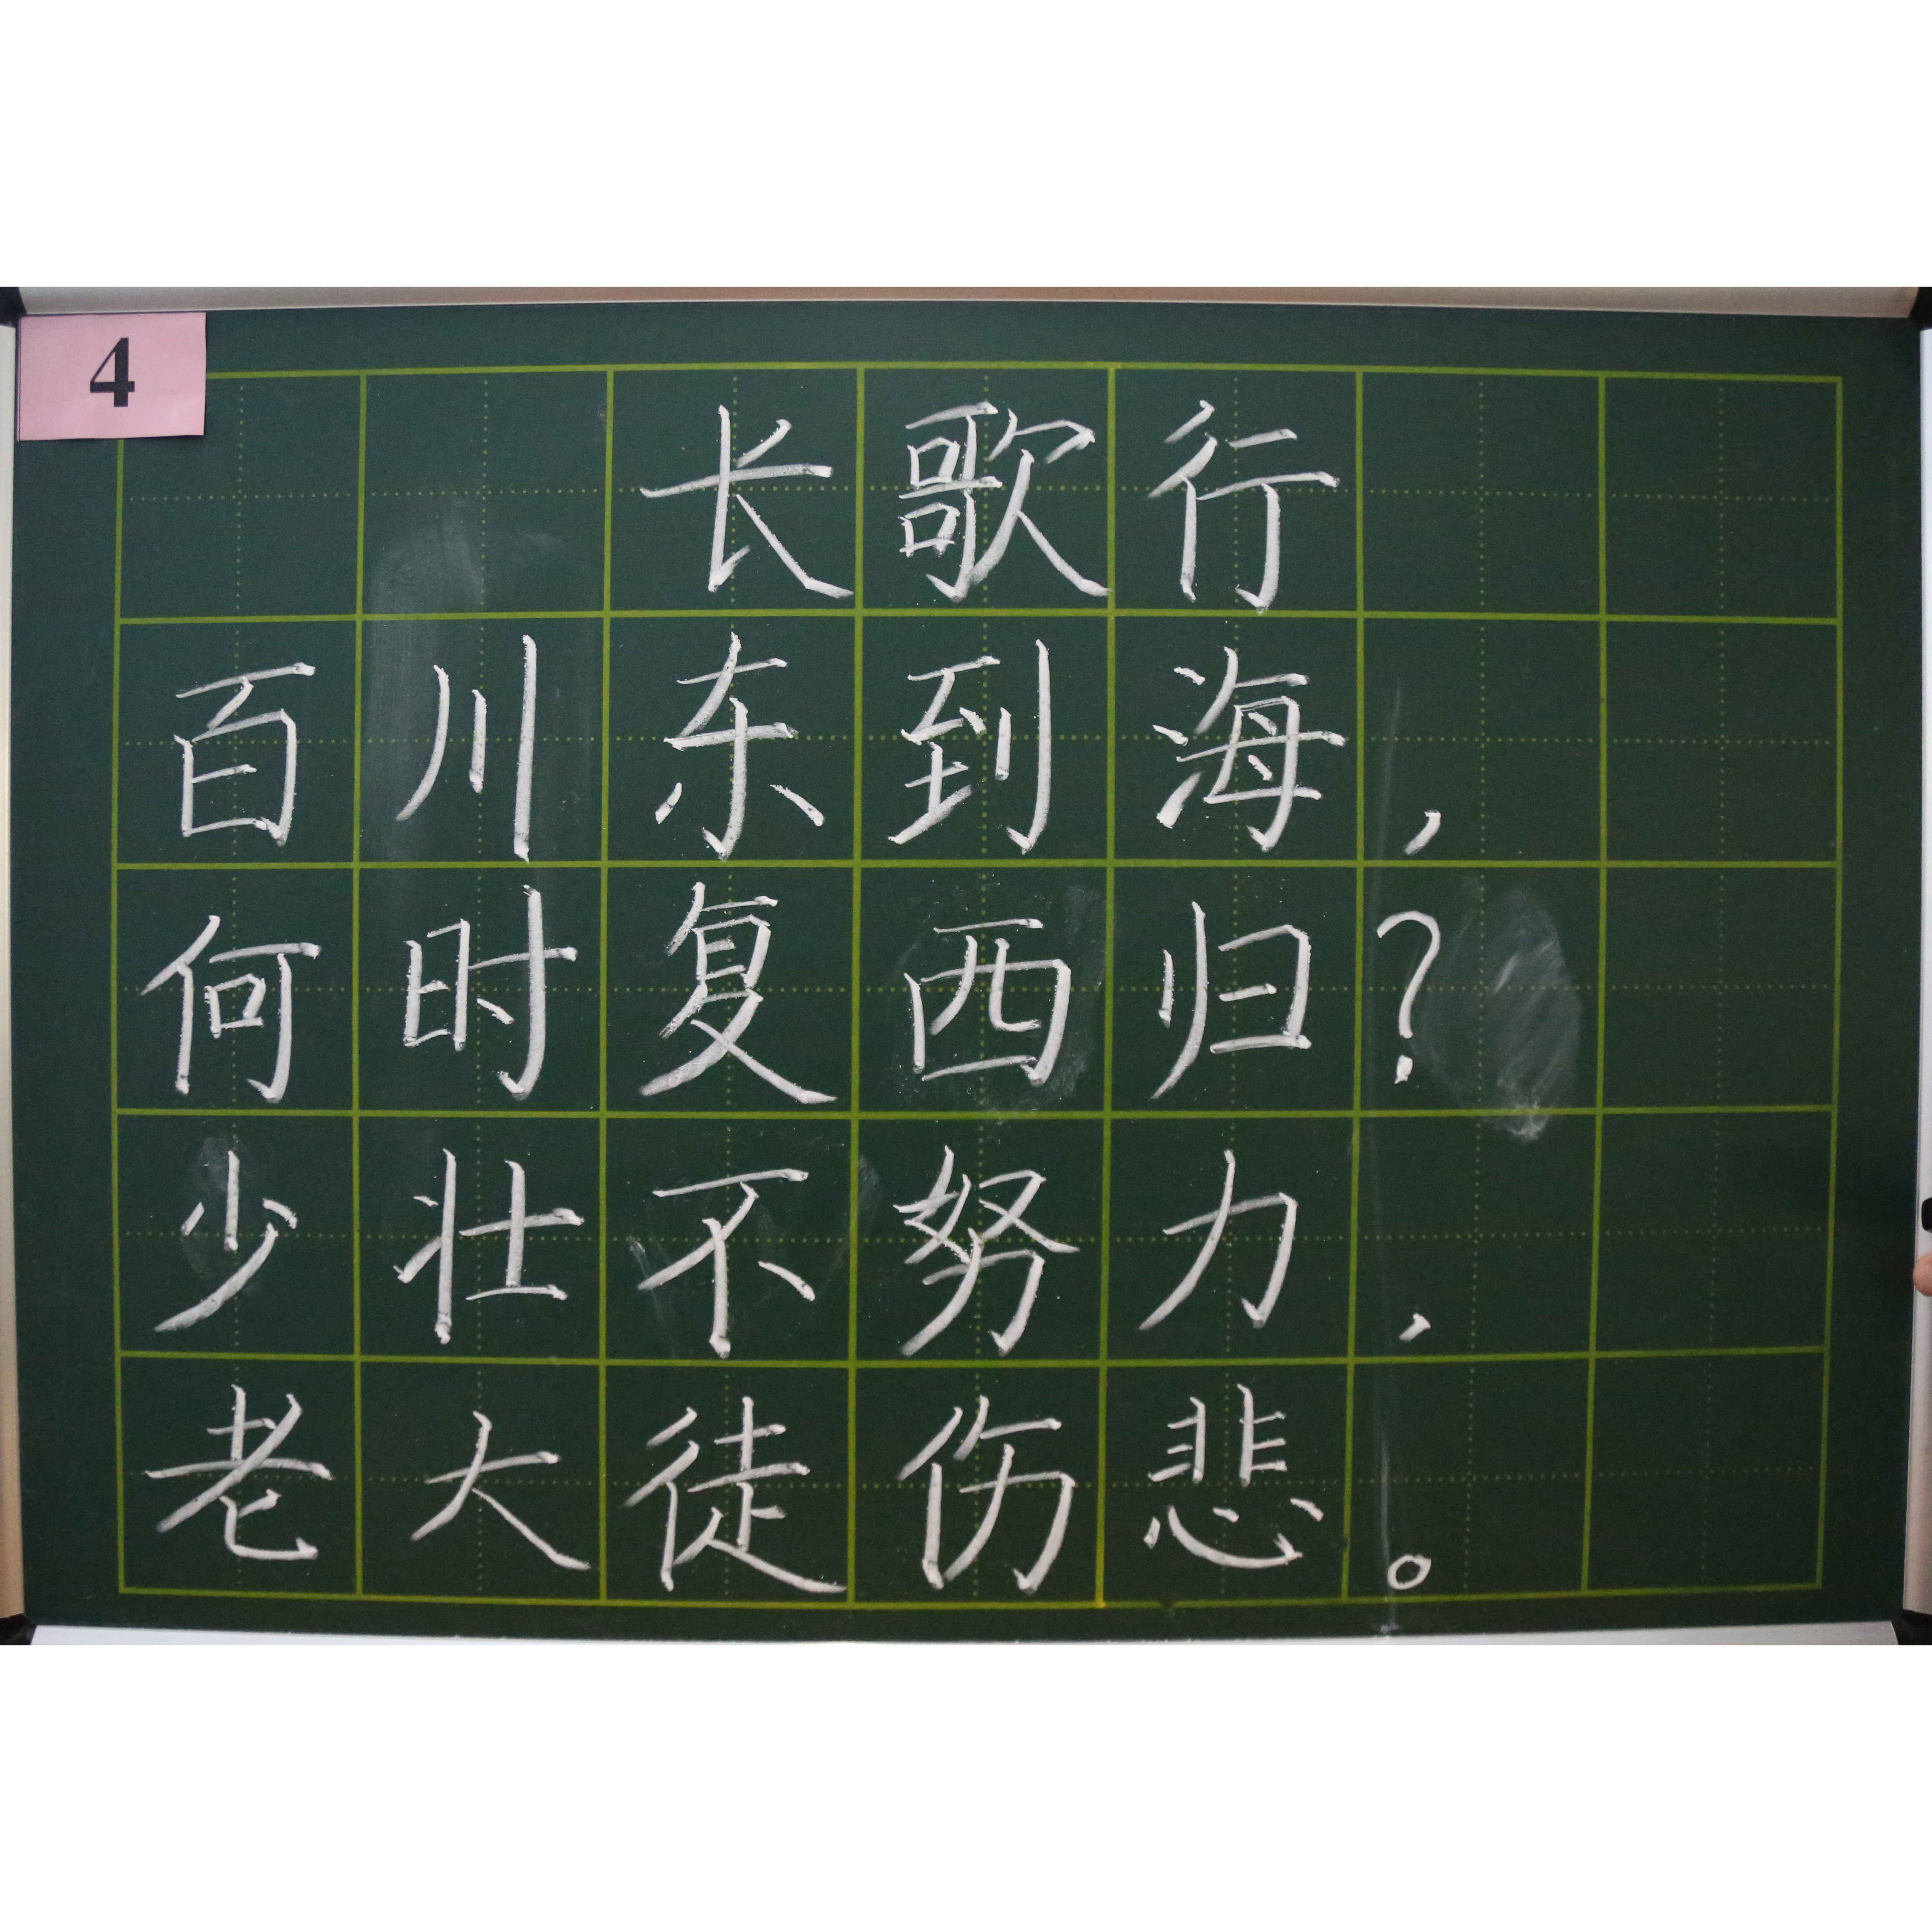 4
长歌行
百川东到海，
何时复西归？
少壮不努力，
老大徒伤悲。